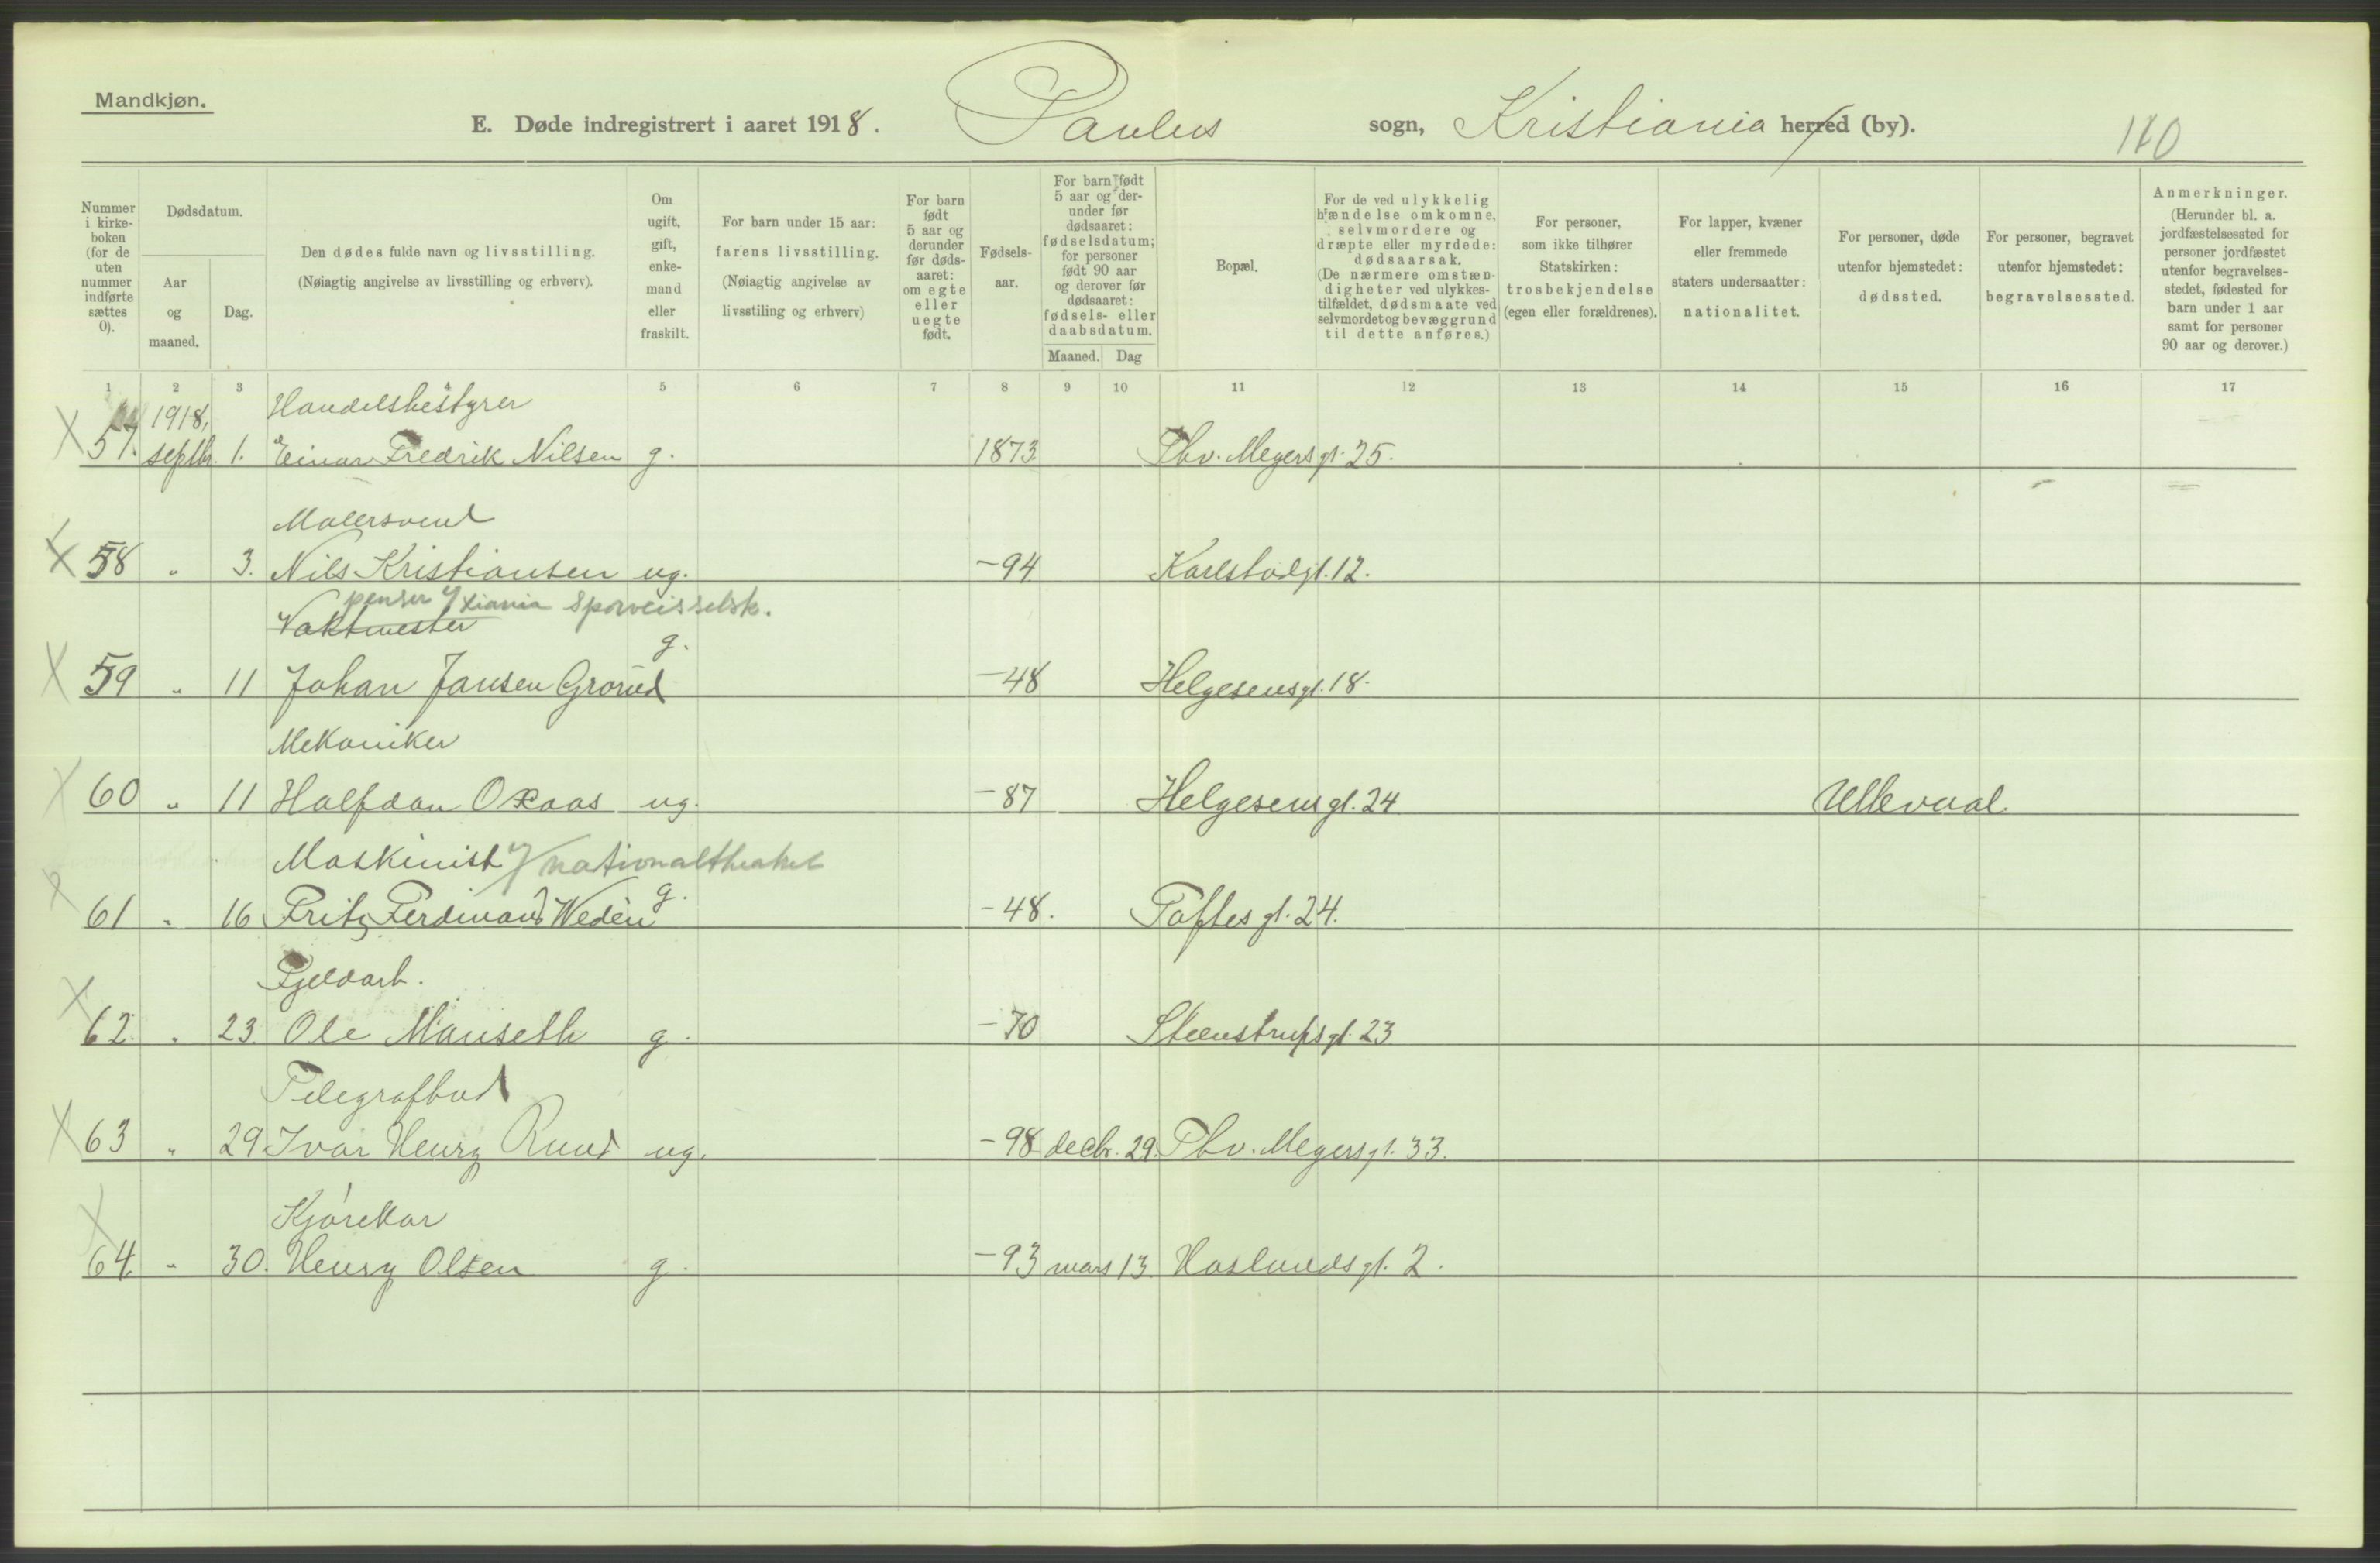 Mandkjøn.
E. Døde indregistrert i aaret 1918. Paulus sogn, Kristiania herred (by).
110
Nummer i kirke-boken (for de uten nummer indførte sættes 0).
Dødsdatum.
Aar og maaned.
Dag.
Den dødes fulde navn og livsstilling.
(Nøiagtig angivelse av livsstilling og erhverv).
Om ugift, gift, enke-mand eller fraskilt.
For barn under 15 aar: farens livsstilling.
(Nøiagtig angivelse av livsstiling og erhverv)
For barn født 5 aar og derunder før døds-aaret: om egte eller uegte født.
Fødsels-aar.
For barn født 5 aar og der-under før dødsaaret: fødselsdatum; for personer født 90 aar og derover før dødsaaret: fødsels- eller daabsdatum.
Maaned. Dag
Bopæl.
For de ved ulykkelig hændelse omkomne, selvmordere og dræpte eller myrdede: dødsaarsak.
(De nærmere omstæn-digheter ved ulykkes-tilfældet, dødsmaate ved selvmordet og bevæggrund til dette anføres.)
For personer, som ikke tilhører Statskirken: trosbekjendelse (egen eller forældrenes).
For lapper, kvæner eller fremmede staters undersaatter: nationalitet.
For personer, døde utenfor hjemstedet: dødssted.
For personer, begravet utenfor hjemstedet: begravelsessted.
Anmerkninger.
(Herunder bl. a. jordfæstelsessted for personer jordfæstet utenfor begravelses-stedet, fødested for barn under 1 aar samt for personer 90 aar og derover.)
1 2 3 4 5 6 7 8 9 10 11 12 13 14 15 16 17
1918, Handelsbestyrer
57. septbr. 1. Einar Fredrik Nilsen g. 1873 Thv. Meyersgt. 25.
Malersvend
58 " 3. Nils Kristiansen ug. -94 Karlstadgt. 12.
penser v/ Xiania Sporveisselsk.
Vaktmester
59 " 11 Johan Jansen Grorud g. -48 Helgesensgt. 18.
Mekaniker
60 " 11 Halfdan Oxaas ug. -87 Helgesensgt. 24 Ullevaal
Maskinist v/ nationaltheatret
61 " 16 Fritz Ferdinand Wedèn g. -48. Toftesgt. 24.
Fjeldarb.
62 " 23. Ole Manseth g. -70 Steenstrupsgt. 23
Telegrafbud
63 " 29 Ivar Henry Ruud ug. -98 decbr. 29. Thv. Meyersgt. 33.
Kjørekar
64 " 30. Henry Olsen g. -93 mars 13 Haslundsgt. 2.